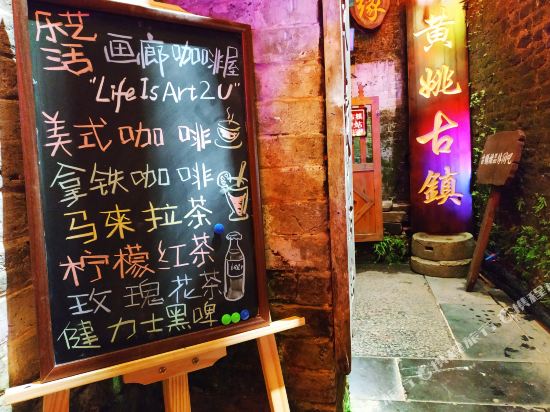 乐艺
活 画廊咖啡屋
"Life Is Art 2 U"
美式咖啡
拿铁咖啡
马來拉茶
柠檬红茶
玫瑰花茶
健力士黑啤
缘
黄姚古鎮